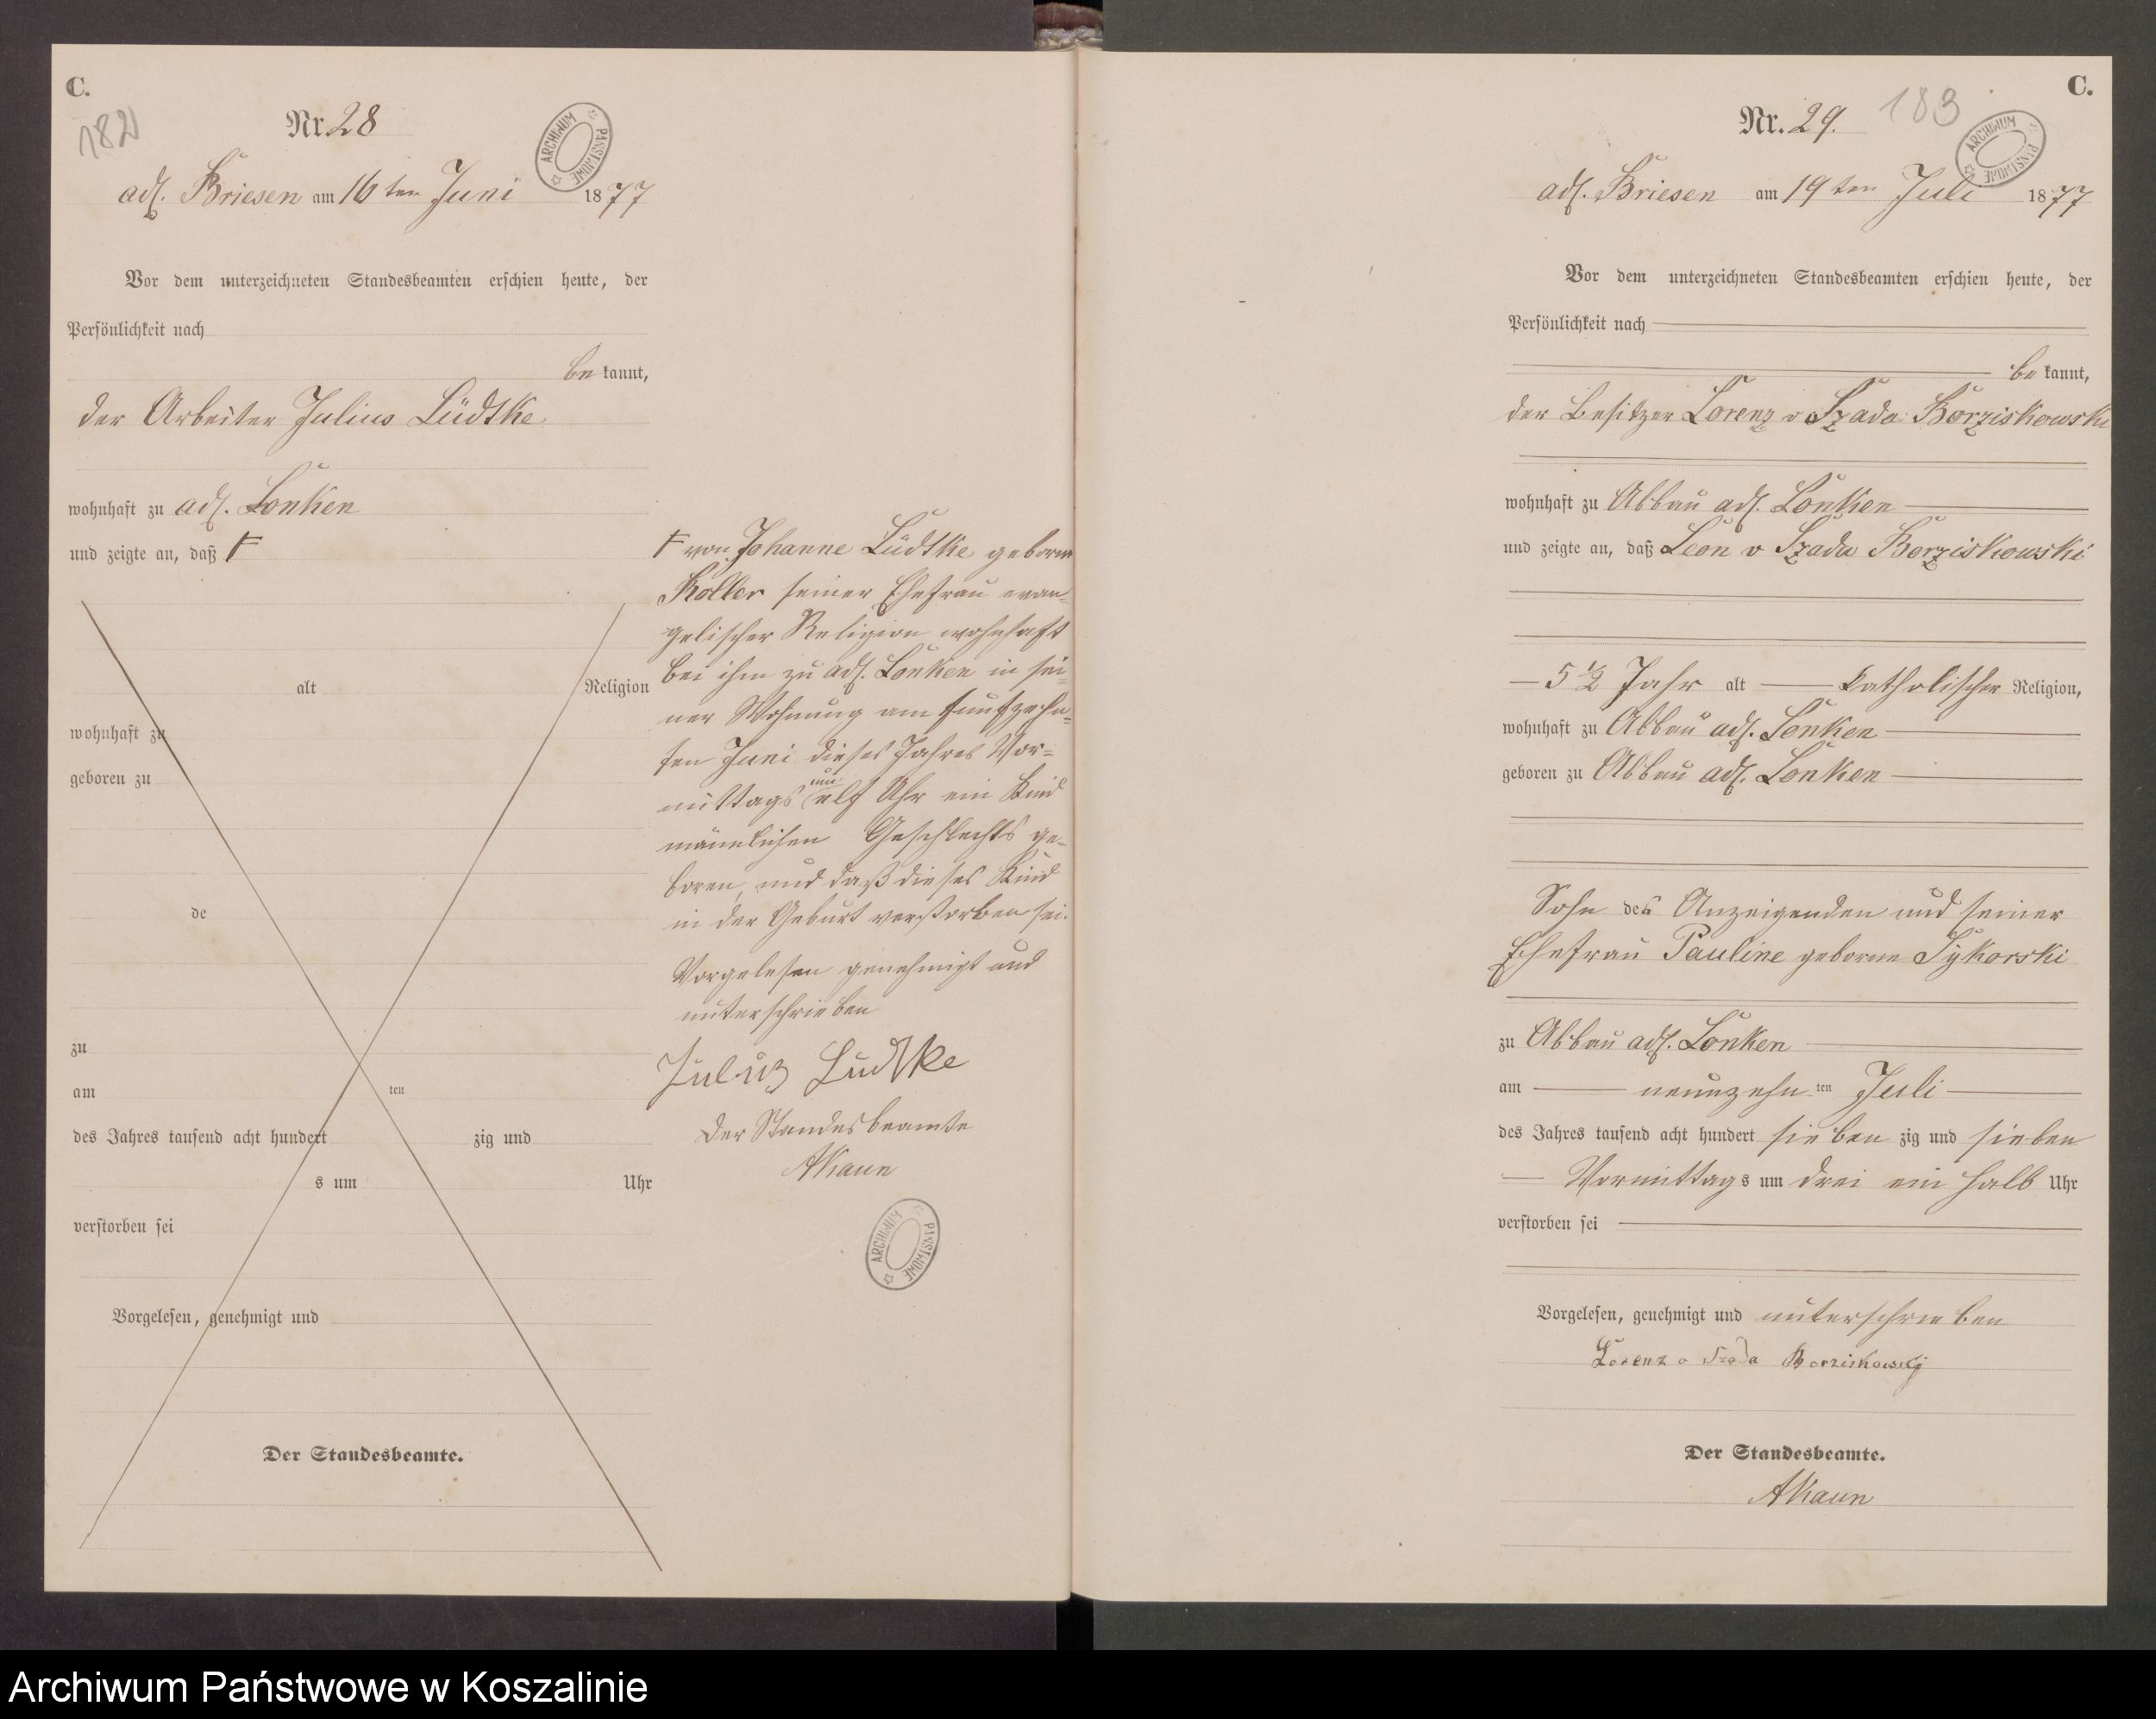 C.
182
Nr. 28
adl. Briesen am 16ten Juni 1877
Vor dem unterzeichneten Standesbeamten erschien heute, der
Persönlichkeit nach
be kannt,
der Arbeiter Julius Lüdtke
wohnhaft zu adl. Lonken
und zeigte an, daß F
alt Religion
wohnhaft zu
geboren zu
de
zu
am ten
des Jahres tausend acht hundert zig und
s um Uhr
verstorben sei
Vorgelesen, genehmigt und
Der Standesbeamte.
F von Johanne Lüdtke geborne
Koller seiner Ehefrau evan-
gelischer Religion wohnhaft
bei ihm zu adl. Lonken in sei-
ner Wohnung am fünfzehn-
ten Juni dieses Jahres Vor-
mittags um elf Uhr ein Kind
männlichen Geschlechts ge-
boren, und daß dieses Kind
in der Geburt verstorben sei.
Vorgelesen genehmigt und
unterschrieben
Julius Ludtke
Der Standesbeamte
AKaun
ARCHIWUM PAŃSTWOWE
C.
Nr. 29.
183
ARCHIWUM PAŃSTWOWE
adl. Briesen am 19ten Juli 1877
Vor dem unterzeichneten Standesbeamten erschien heute, der
Persönlichkeit nach
be kannt,
der Besitzer Lorenz v Szada Borziskowski
wohnhaft zu Abbau adl. Lonken
und zeigte an, daß Leon v Szada Borziskowski
5 1/2 Jahr alt katholischer Religion,
wohnhaft zu Abbau adl. Lonken
geboren zu Abbau adl. Lonken
Sohn des Anzeigenden und seiner
Ehefrau Pauline geborne Sykorski
zu Abbau adl. Lonken
am neunzehn ten Juli
des Jahres tausend acht hundert sieben zig und sieben
Vormittag s um drei ein halb Uhr
verstorben sei
Vorgelesen, genehmigt und unterschrieben
Lorenz v Szada Borziskowski
Der Standesbeamte.
AKaun
Archiwum Państwowe w Koszalinie